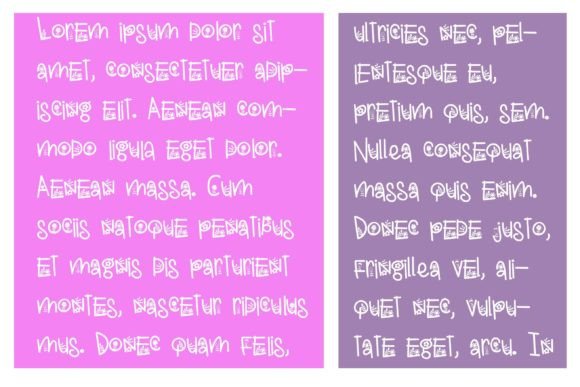 Lorem ipsum dolor sit
amet, consectetuer adip-
iscing elit. Aenean com-
modo ligula eget dolor.
Aenean massa. Cum
sociis natoque penatibus
et magnis dis parturient
montes, nascetur ridiculus
mus. Donec quam felis,
ultricies nec, pel-
lentesque eu,
pretium quis, sem.
Nullea consequat
massa quis enim.
Donec pede justo,
fringillea vel, ali-
quet nec, vulpu-
tate eget, arcu. In